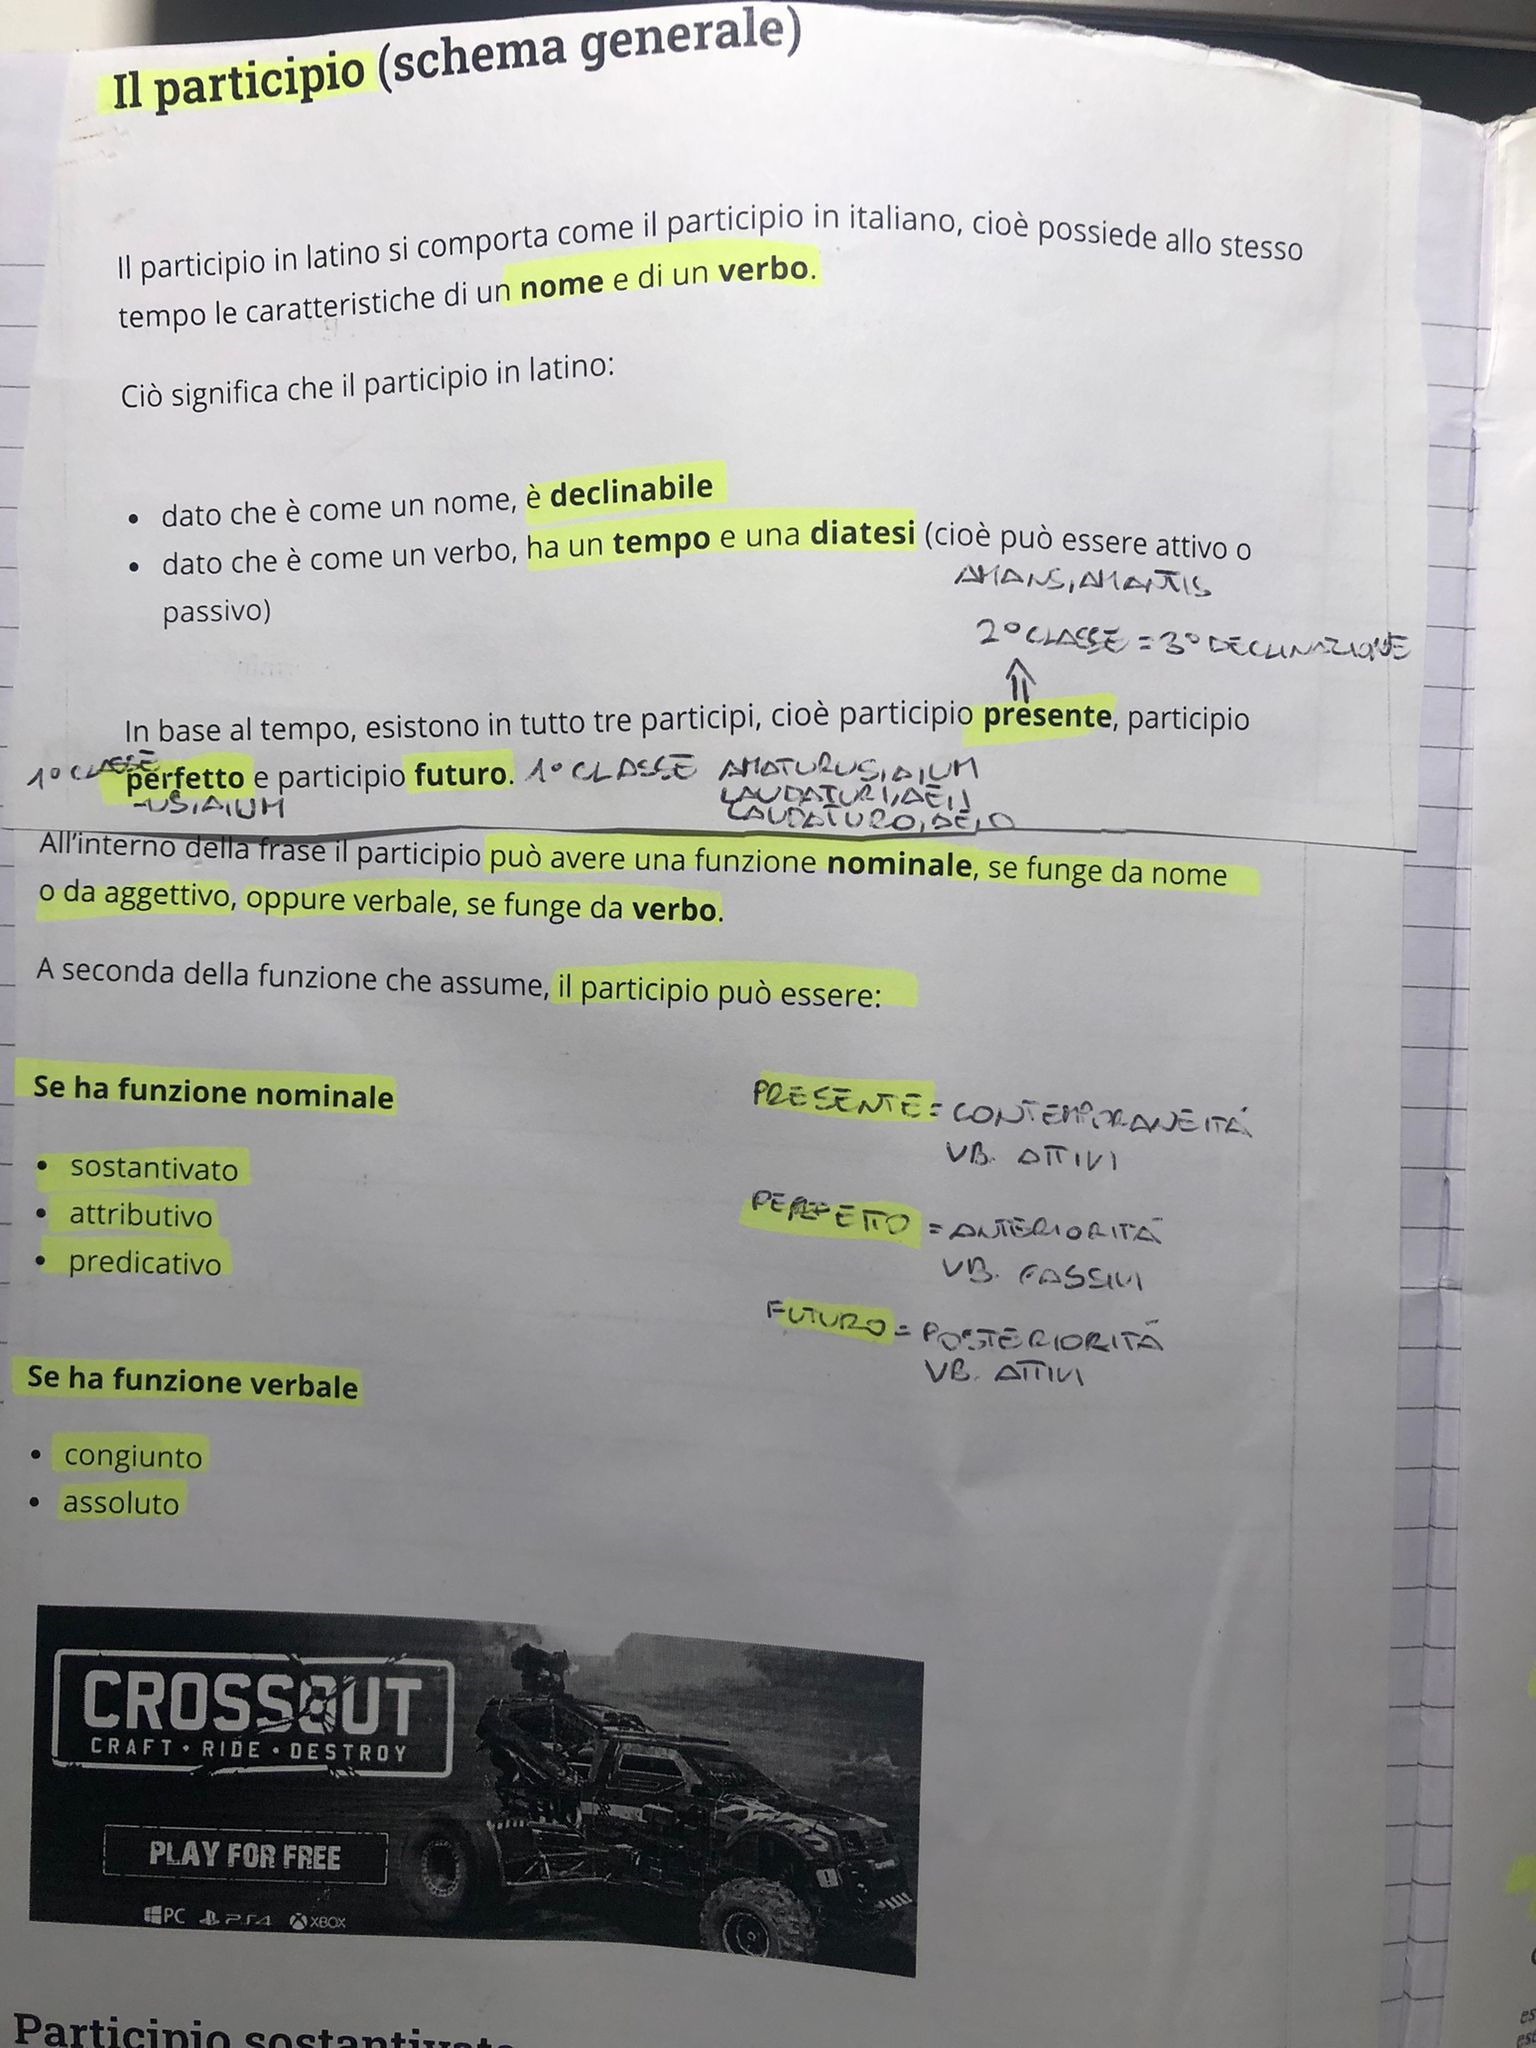 Il participio (schema generale)
Il participio in latino si comporta come il participio in italiano, cioè possiede allo stesso
tempo le caratteristiche di un nome e di un verbo.
Ciò significa che il participio in latino:
• dato che è come un nome, è declinabile
• dato che è come un verbo, ha un tempo e una diatesi (cioè può essere attivo o
AMANS, AMANTIS
passivo)
2° CLASSE = 3° DECLINAZIONE
⇑
In base al tempo, esistono in tutto tre participi, cioè participio presente, participio
1° CLASSE perfetto e participio futuro. 1° CLASSE AMATURUS, A, UM
-US, A, UM
LAUDATURI, AE, I
LAUDATURO, AE, O
All'interno della frase il participio può avere una funzione nominale, se funge da nome
o da aggettivo, oppure verbale, se funge da verbo.
A seconda della funzione che assume, il participio può essere:
Se ha funzione nominale
• sostantivato
• attributivo
• predicativo
PRESENTE = CONTEMPORANEITÁ
VB. ATTIVI
PERFETTO = ANTERIORITÁ
VB. PASSIVI
FUTURO = POSTERIORITÁ
VB. ATTIVI
Se ha funzione verbale
• congiunto
• assoluto
CROSSOUT
CRAFT • RIDE • DESTROY
PLAY FOR FREE
PC PS4 XBOX
Participio sostantivato